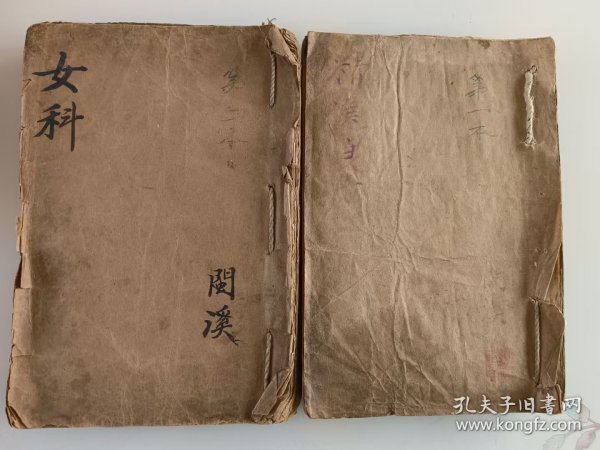 女科
第二本
閩溪
第一本
孔夫子旧書网
www.kongfz.com